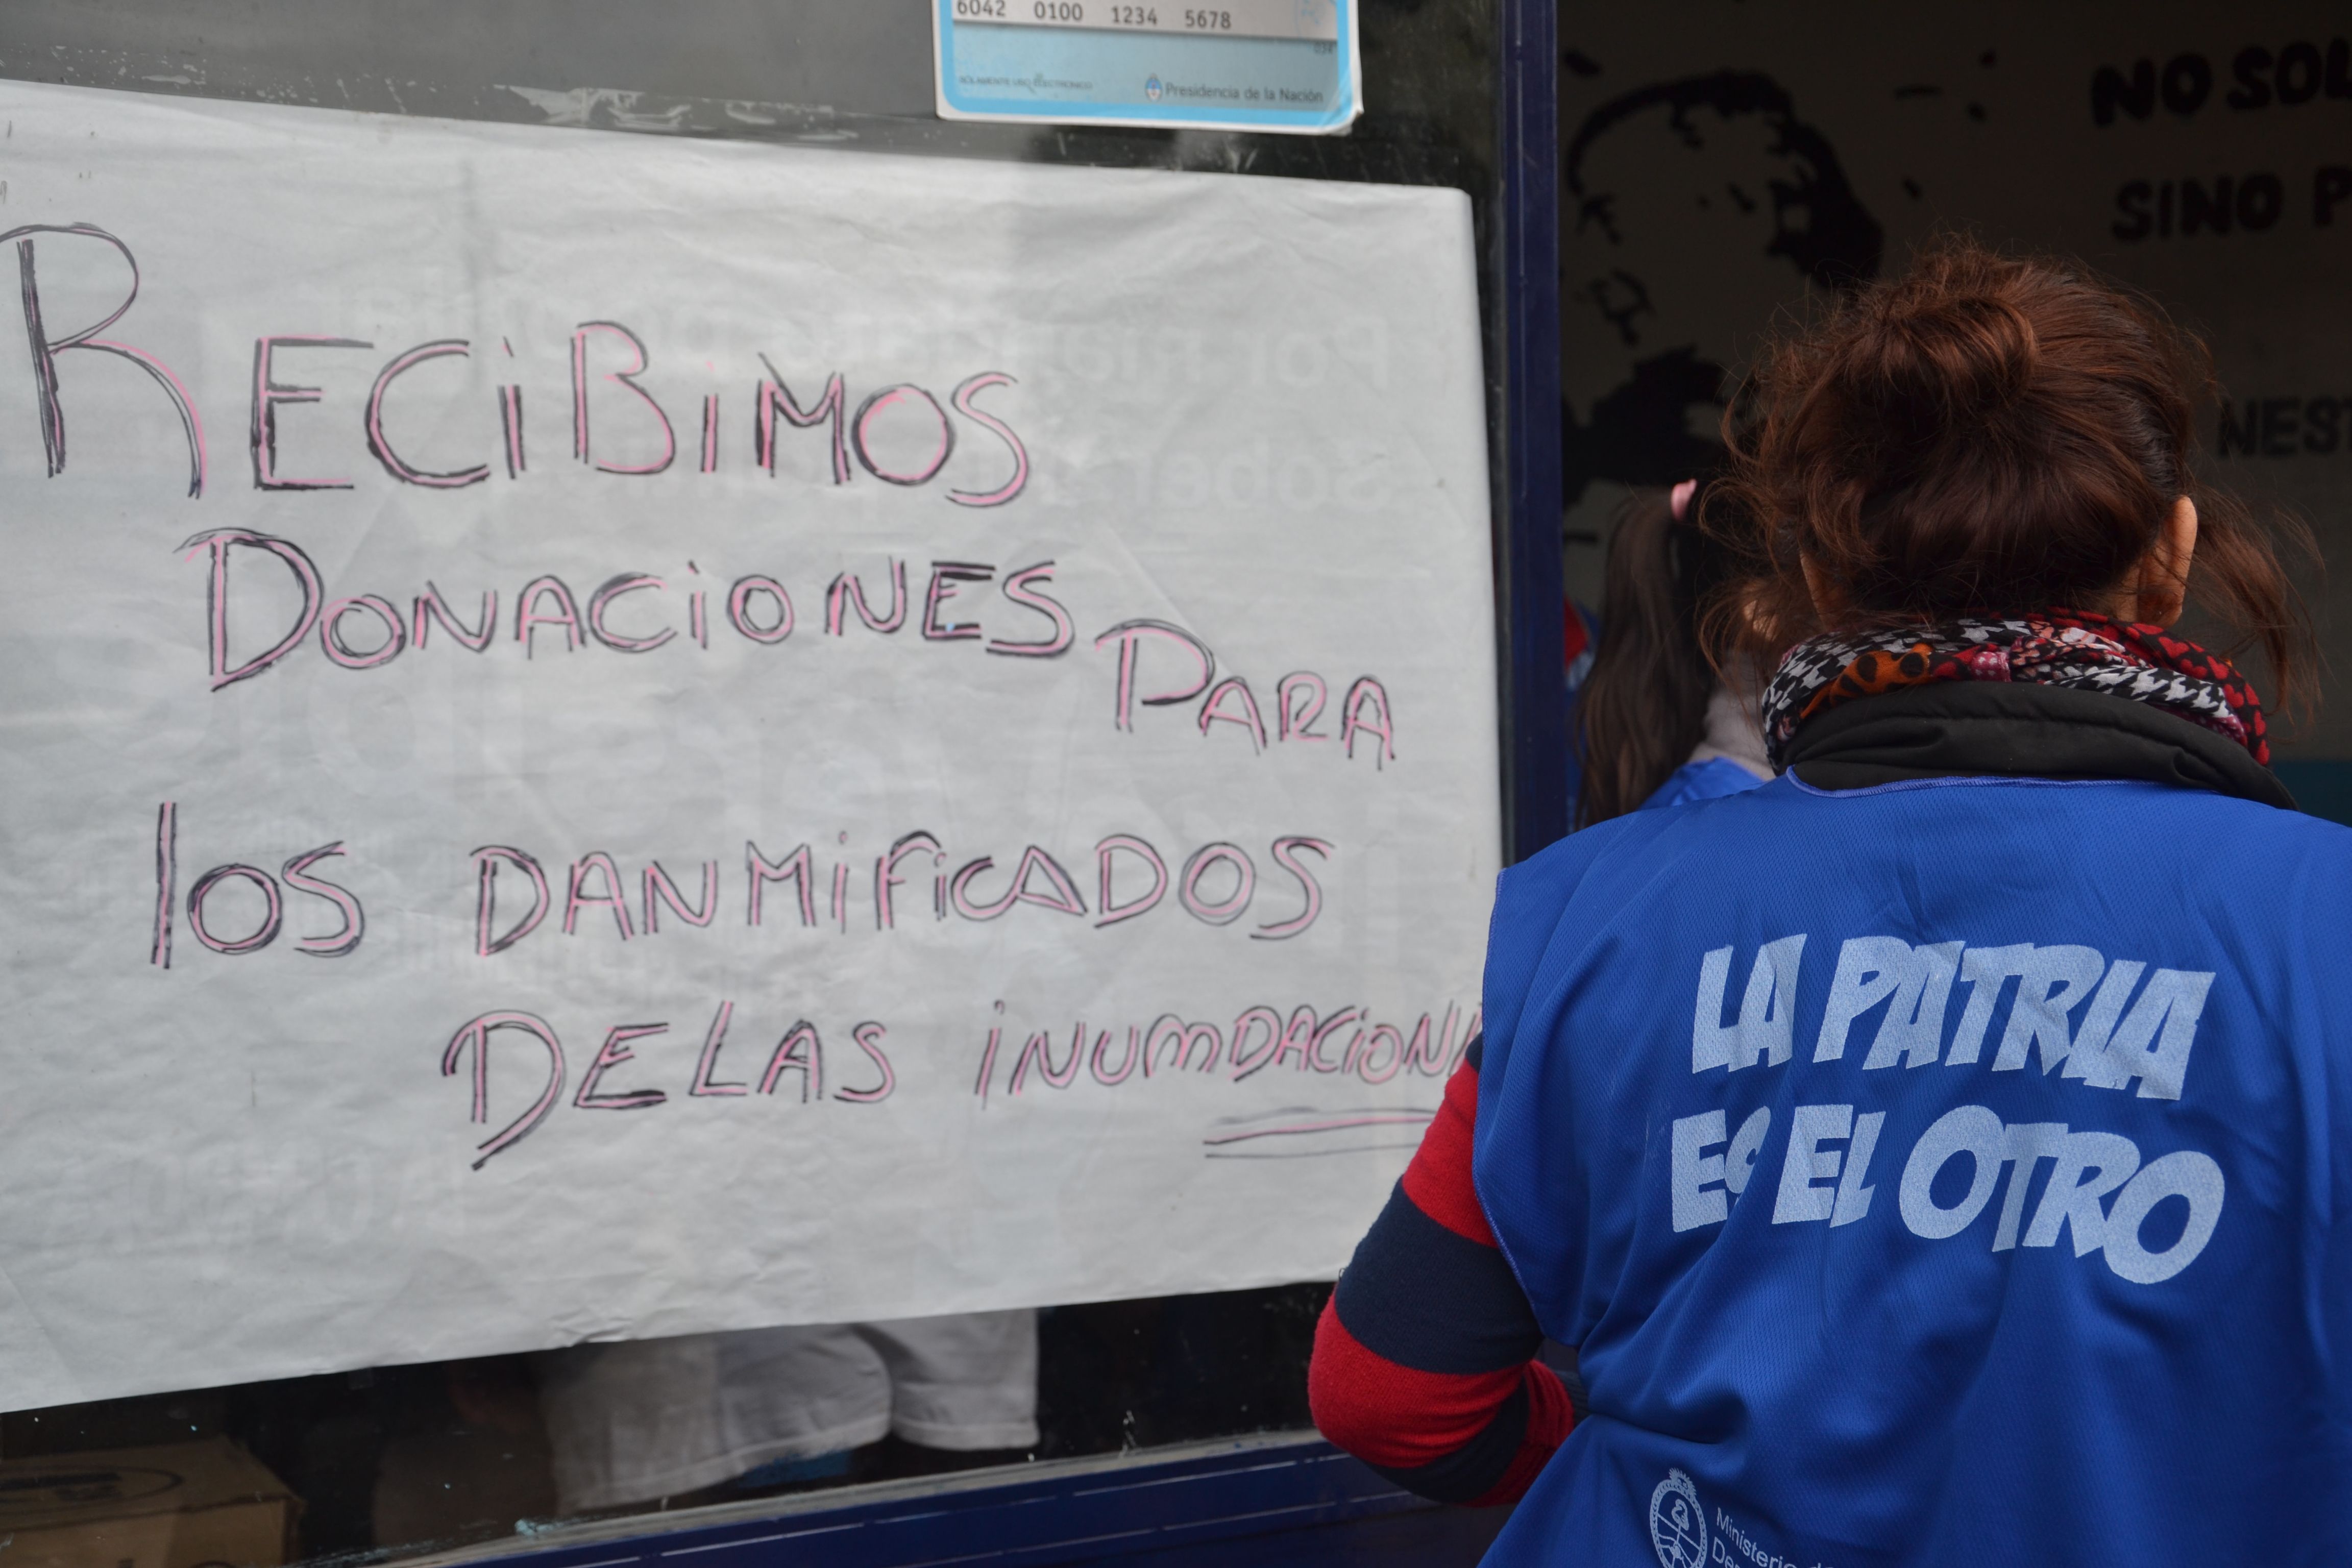 6042 0100 1234 5678
034
SOLAMENTE USO ELECTRONICO
Presidencia de la Nación
RECIBIMOS
DONACIONES PARA
los DANMIFICADOS
DE LAS INUMDACION
NO SOL
SINO P
NEST
LA PATRIA
ES EL OTRO
Ministerio de
De